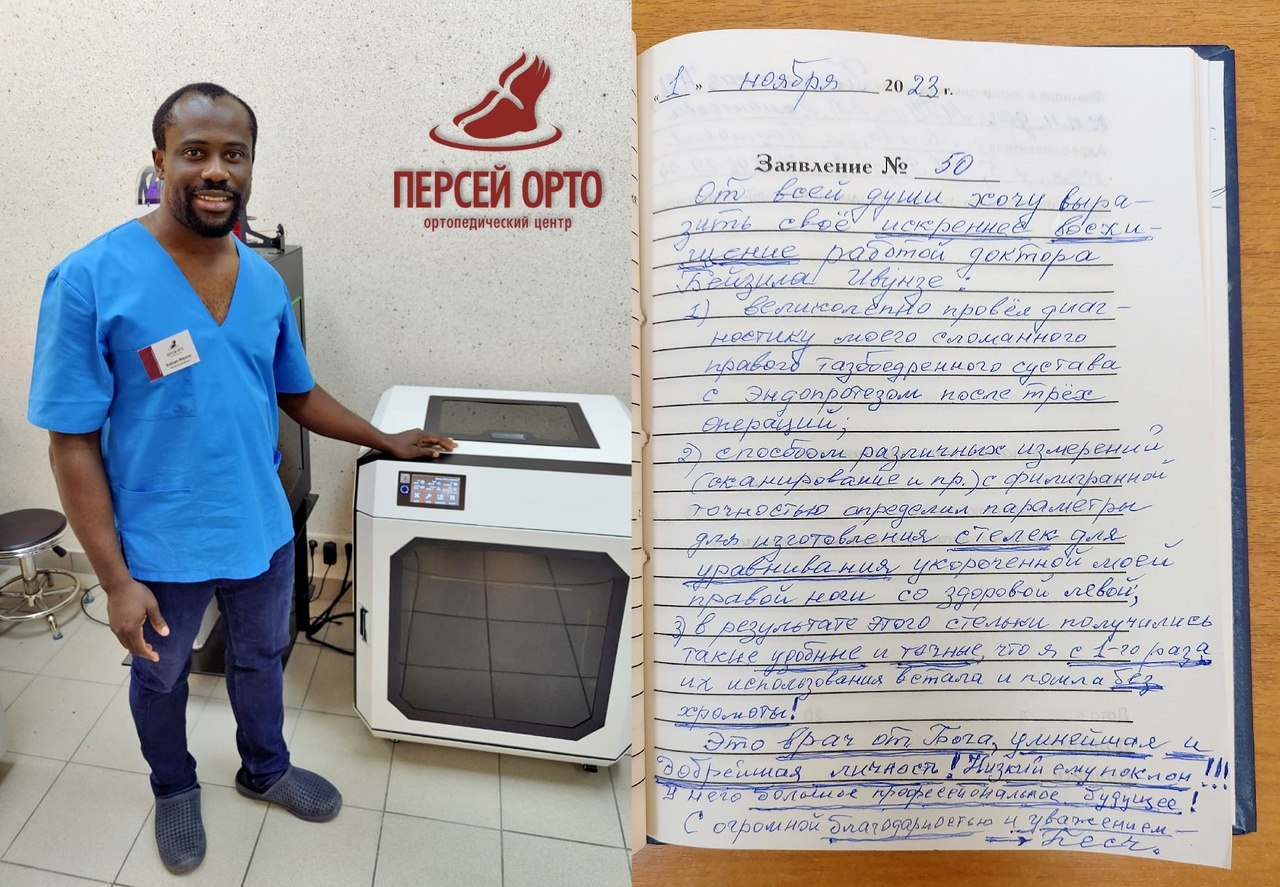 ПЕРСЕЙ ОРТО
ортопедический центр
«1» ноября 2023 г.
Заявление № 50
От всей души хочу выра-
зить своё искреннее восхи-
щение работой доктора
Бейзила Ивунзе:
1) великолепно провёл диаг-
ностику моего сломанного
правого тазбоедренного сустава
с эндопротезом после трёх
операций;
2) способом различных измерений
(сканирование и пр.) с филигранной
точностью определил параметры
для изготовления стелек для
уравнивания укороченной моей
правой ноги со здоровой левой;
3) в результате этого стельки получились
такие удобные и точные, что я с 1-го раза
их использования встала и пошла без
хромоты!
Это врач от Бога, умнейшая и
добрейшая личность! Низкий ему поклон!!!
У него большое профессиональное будущее!
С огромной благодарностью и уважением –